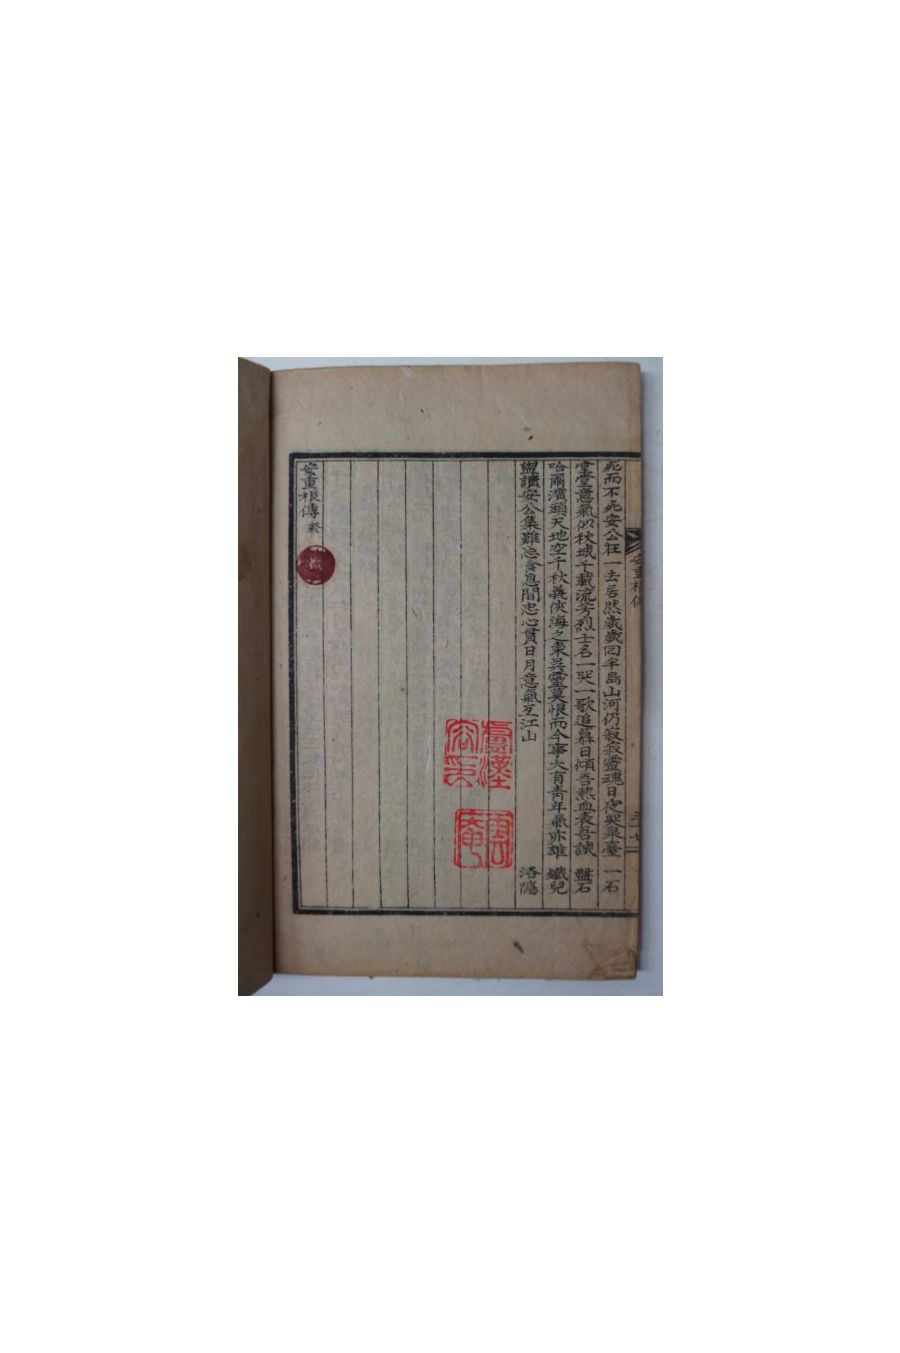 死而不死安公枉一去居然歲歲回半島山河仍寂寂靈魂日夜哭泉臺 一石
堂堂意氣似秋城千載流芳烈士名一哭一歌追慕日傾吾熱血表吾誠 盤石
哈爾濱頭天地空千秋義俠海之東英靈莫恨而今事大有靑年氣亦雄 蠟兒
盥讀安公集難忘食息間忠心貫日月意氣亙江山 洛隱
安重根傳終
安重根傳
三十七